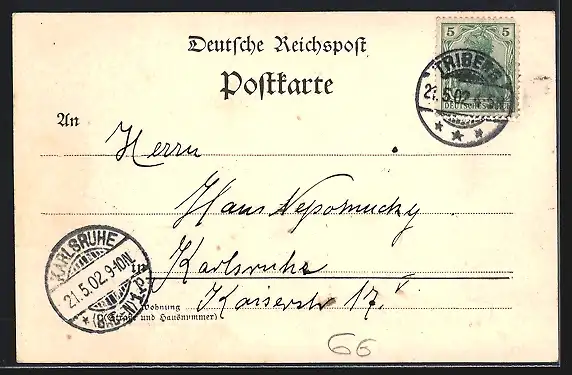 Deutsche Reichspost
Postkarte
5 5
TRIBERG
21.5.02.
DEUTSCHES REICH
An
Herrn
Hans Nepomucky
in Karlsruhe
Kaiserstr 17.
Wohnung
(Straße und Hausnummer)
KARLSRUHE
21.5.02.9-10N.
* (BADEN) 1.P.
66